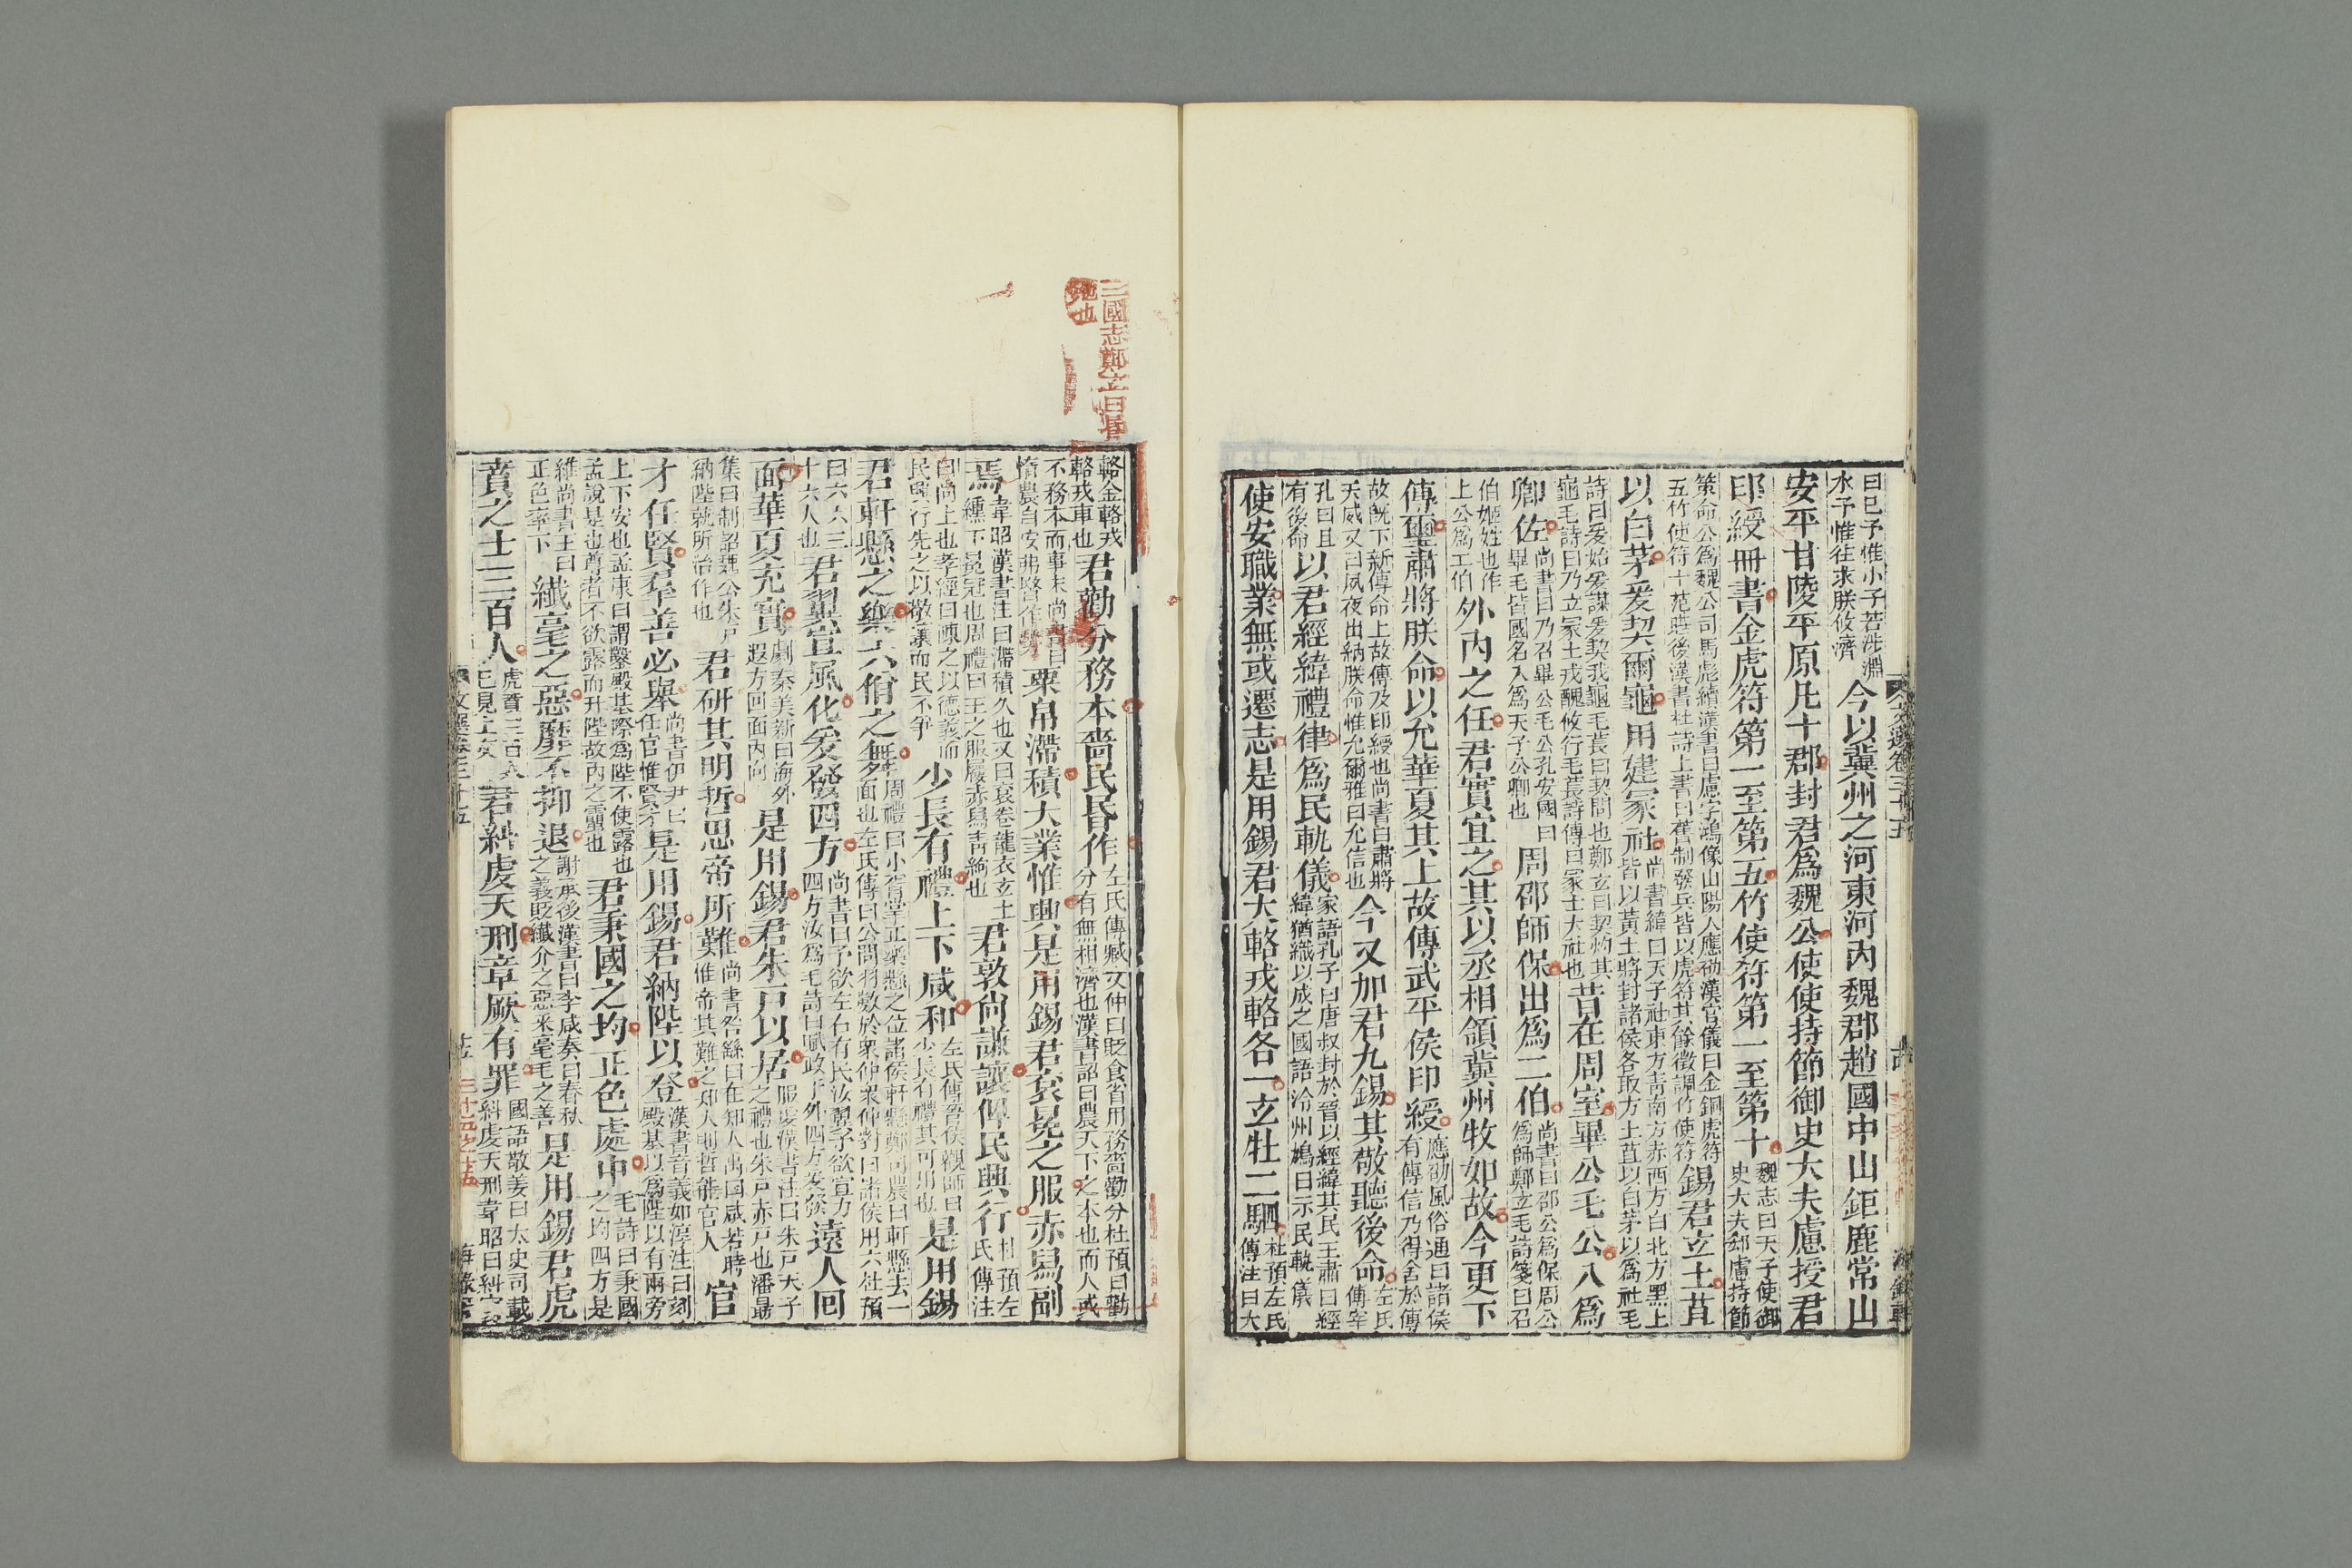 文選卷三十五
曰已予惟小子若涉淵
水予惟往求朕攸濟
今以冀州之河東河內魏郡趙國中山鉅鹿常山
安平甘陵平原凡十郡封君爲魏公使使持節御史大夫慮授君
印綬冊書金虎符第一至第五竹使符第一至第十
魏志曰天子使御
史大夫郗慮持節
策命公爲魏公司馬彪續漢書曰慮字鴻豫山陽人應劭漢官儀曰金銅虎符
五竹使符十范曄後漢書杜詩上書曰舊制發兵皆以虎符其餘徵調竹使符
錫君玄土苴
以白茅爰契爾龜用建冢社
尚書緯曰天子社東方青南方赤西方白北方黑上
皆以黃土將封諸侯各取方土苴以白茅以爲社毛
詩曰爰始爰謀爰契我龜毛萇曰契開也鄭玄曰契灼其
龜毛詩曰乃立冢土戎醜攸行毛萇詩傳曰冢土大社也
昔在周室畢公毛公入爲
卿佐
尚書曰乃召畢公毛公孔安國曰
畢毛皆國名入爲天子公卿也
周邵師保出爲二伯
尚書曰邵公爲保周公
爲師鄭玄毛詩箋曰召
伯姬姓也作
上公爲二伯
外內之任君實宜之其以丞相領冀州牧如故今更下
傳璽肅將朕命以允華夏其上故傳武平侯印綬
應劭風俗通曰諸侯
有傳信乃得舍於傳
故既下新傳命上故傳及印綬也尚書曰肅將
天威又曰夙夜出納朕命惟允爾雅曰允信也
今又加君九錫其敬聽後命
左氏
傳宰
孔曰且
有後命
以君經緯禮律爲民軌儀
家語孔子曰唐叔封於晉以經緯其民王肅曰經
緯猶織以成之國語泠州鳩曰示民軌儀
使安職業無或遷志是用錫君大輅戎輅各一玄牡二駟
杜預左氏
傳注曰大
三國志鄭玄曰昬
勉也
輅金輅戎
輅戎車也
君勸分務本嗇民昬作
左氏傳臧文仲曰貶食省用務嗇勸分杜預曰勸
分有無相濟也漢書詔曰農天下之本也而人或
不務本而事末尚書曰
惰農自安弗昬作勞
粟帛滯積大業惟興是用錫君袞冕之服赤舄副
焉
韋昭漢書注曰滯積久也又曰袞卷龍衣玄上
纁下冕冠也周禮曰王之服屨赤舄青絇也
君敦尚謙讓俾民興行
杜預左
氏傳注
曰尚上也孝經曰陳之以德義而
民興行先之以敬讓而民不爭
少長有禮上下咸和
左氏傳晉侯觀師曰
少長有禮其可用也
是用錫
君軒懸之樂六佾之舞
周禮曰小胥掌正樂懸之位諸侯軒懸鄭司農曰軒懸去一
面也左氏傳曰公問羽數於衆仲衆仲對曰諸侯用六杜預
曰六六三
十六人也
君翼宣風化爰發四方
尚書曰予欲左右有民汝翼予欲宣力
四方汝爲毛詩曰賦政于外四方爰發
遠人回
面華夏充實
劇秦美新曰海外
遐方回面內向
是用錫君朱戶以居
服虔漢書注曰朱戶天子
之禮也朱戶赤戶也潘勗
集曰制詔魏公朱戶
納陛就所治作也
君研其明哲思帝所難
尚書咎繇曰在知人禹曰咸若時
惟帝其難之知人則哲能官人
官
才任賢羣善必舉
尚書伊尹曰
任官惟賢才
是用錫君納陛以登
漢書音義如淳注曰刻
殿基以爲陛以有兩旁
上下安也孟康曰謂鑿殿基際爲陛不使露也
孟說是也尊者不欲露而升陛故內之霤也
君秉國之均正色處中
毛詩曰秉國
之均四方是
維尚書王曰
正色率下
纖毫之惡靡不抑退
謝承後漢書曰李咸奏曰春秋
之義貶纖介之惡采毫毛之善
是用錫君虎
賁之士三百人
虎賁三百人
已見上文
君糾虔天刑章厥有罪
國語敬姜曰太史司載
糾虔天刑韋昭曰糾
文選卷三十五
三十五之十五